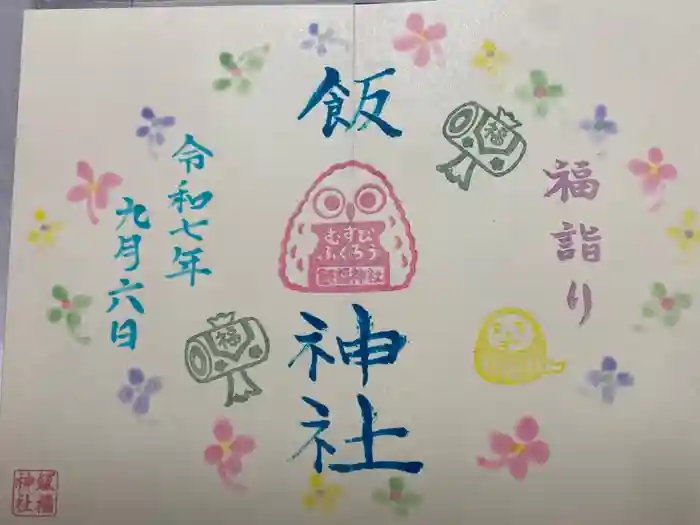 福詣り
飯
福
むすび
ふくろう
飯福神社
神社
令和七年
九月六日
福
飯福
神社